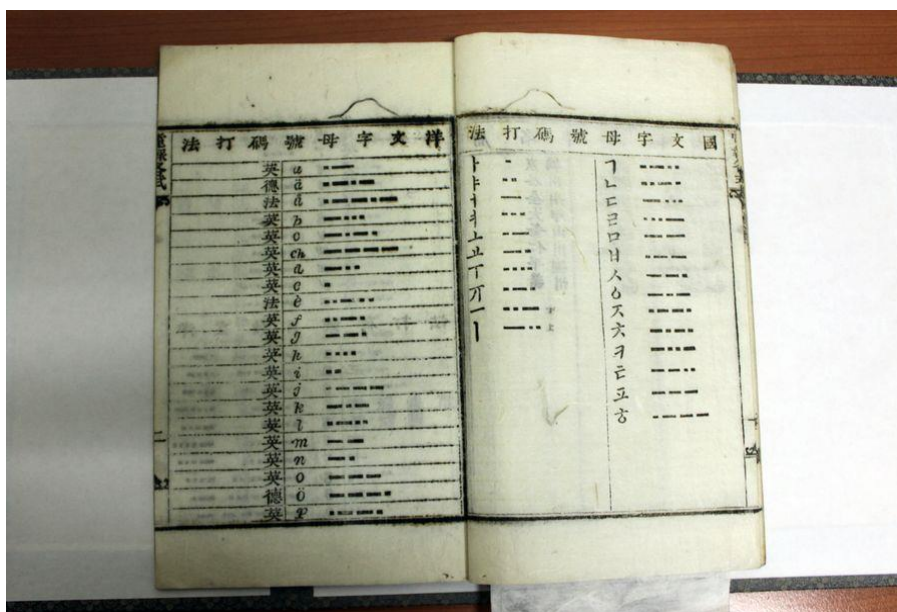 國文字母號碼打法
ㄱ
ㄴ
ㄷ
ㄹ
ㅁ
ㅂ
ㅅ
ㅇ
ㅈ
ㅊ
ㅋ
ㅌ
ㅍ
ㅎ
ㅏ
ㅑ
ㅓ
ㅕ
ㅗ
ㅛ
ㅜ
ㅠ
ㅡ
ㅣ
洋文字母號碼打法
英 a
德 ä
法
英 b
英 c
英 ch
英 d
英 e
法 é
英 f
英 g
英 h
英 i
英 j
英 k
英 l
英 m
英 n
英 o
德 ö
英 p